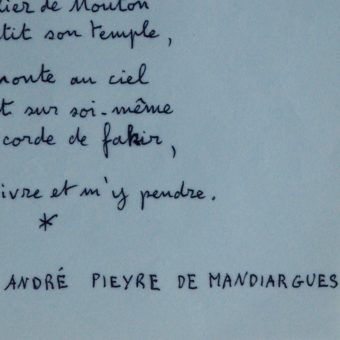 lier de Mouton
tit son temple,
monte au ciel
t sur soi-même
corde de fakir,
ivre et m'y pendre.
*
ANDRÉ PIEYRE DE MANDIARGUES